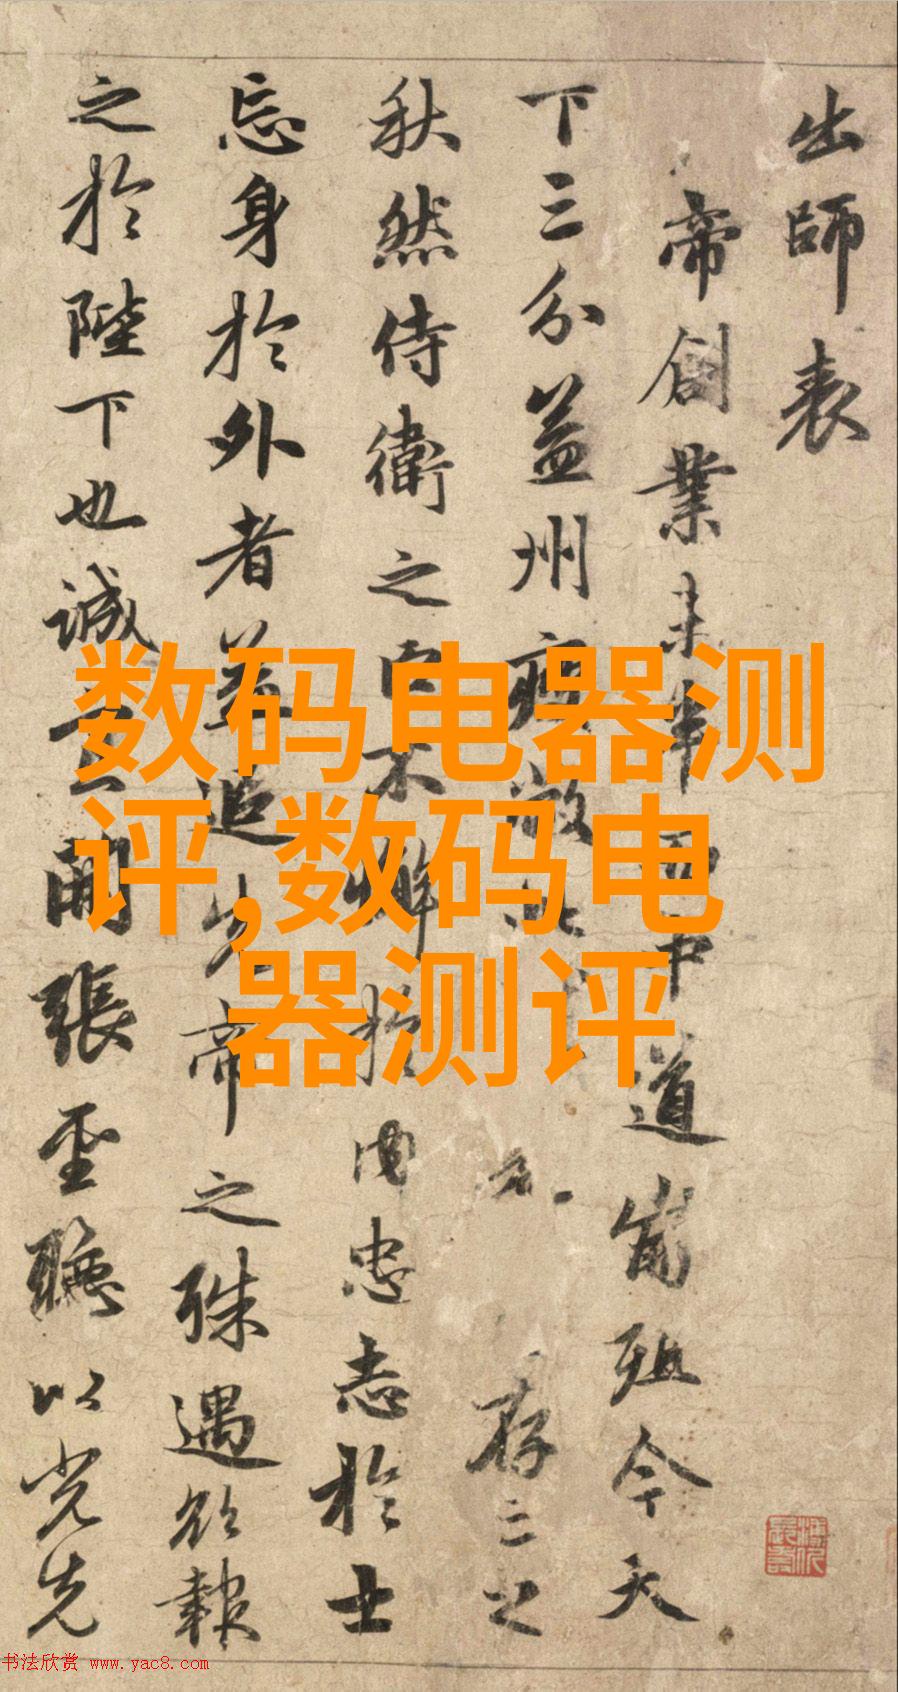 出師表
帝創業未半而中道崩殂今天
下三分益州疲敝此存亡之
秋然侍衛之臣不懈於內忠志於士
忘身於外者蓋追先帝之殊遇欲報
之於陛下也誠宜開張聖聽以光先
数码电器测
评,数码电
器测评
书法欣赏 www.yac8.com